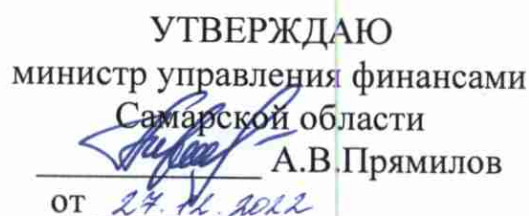 УТВЕРЖДАЮ
министр управления финансами
Самарской области
А.В.Прямилов
от 27.12.2022